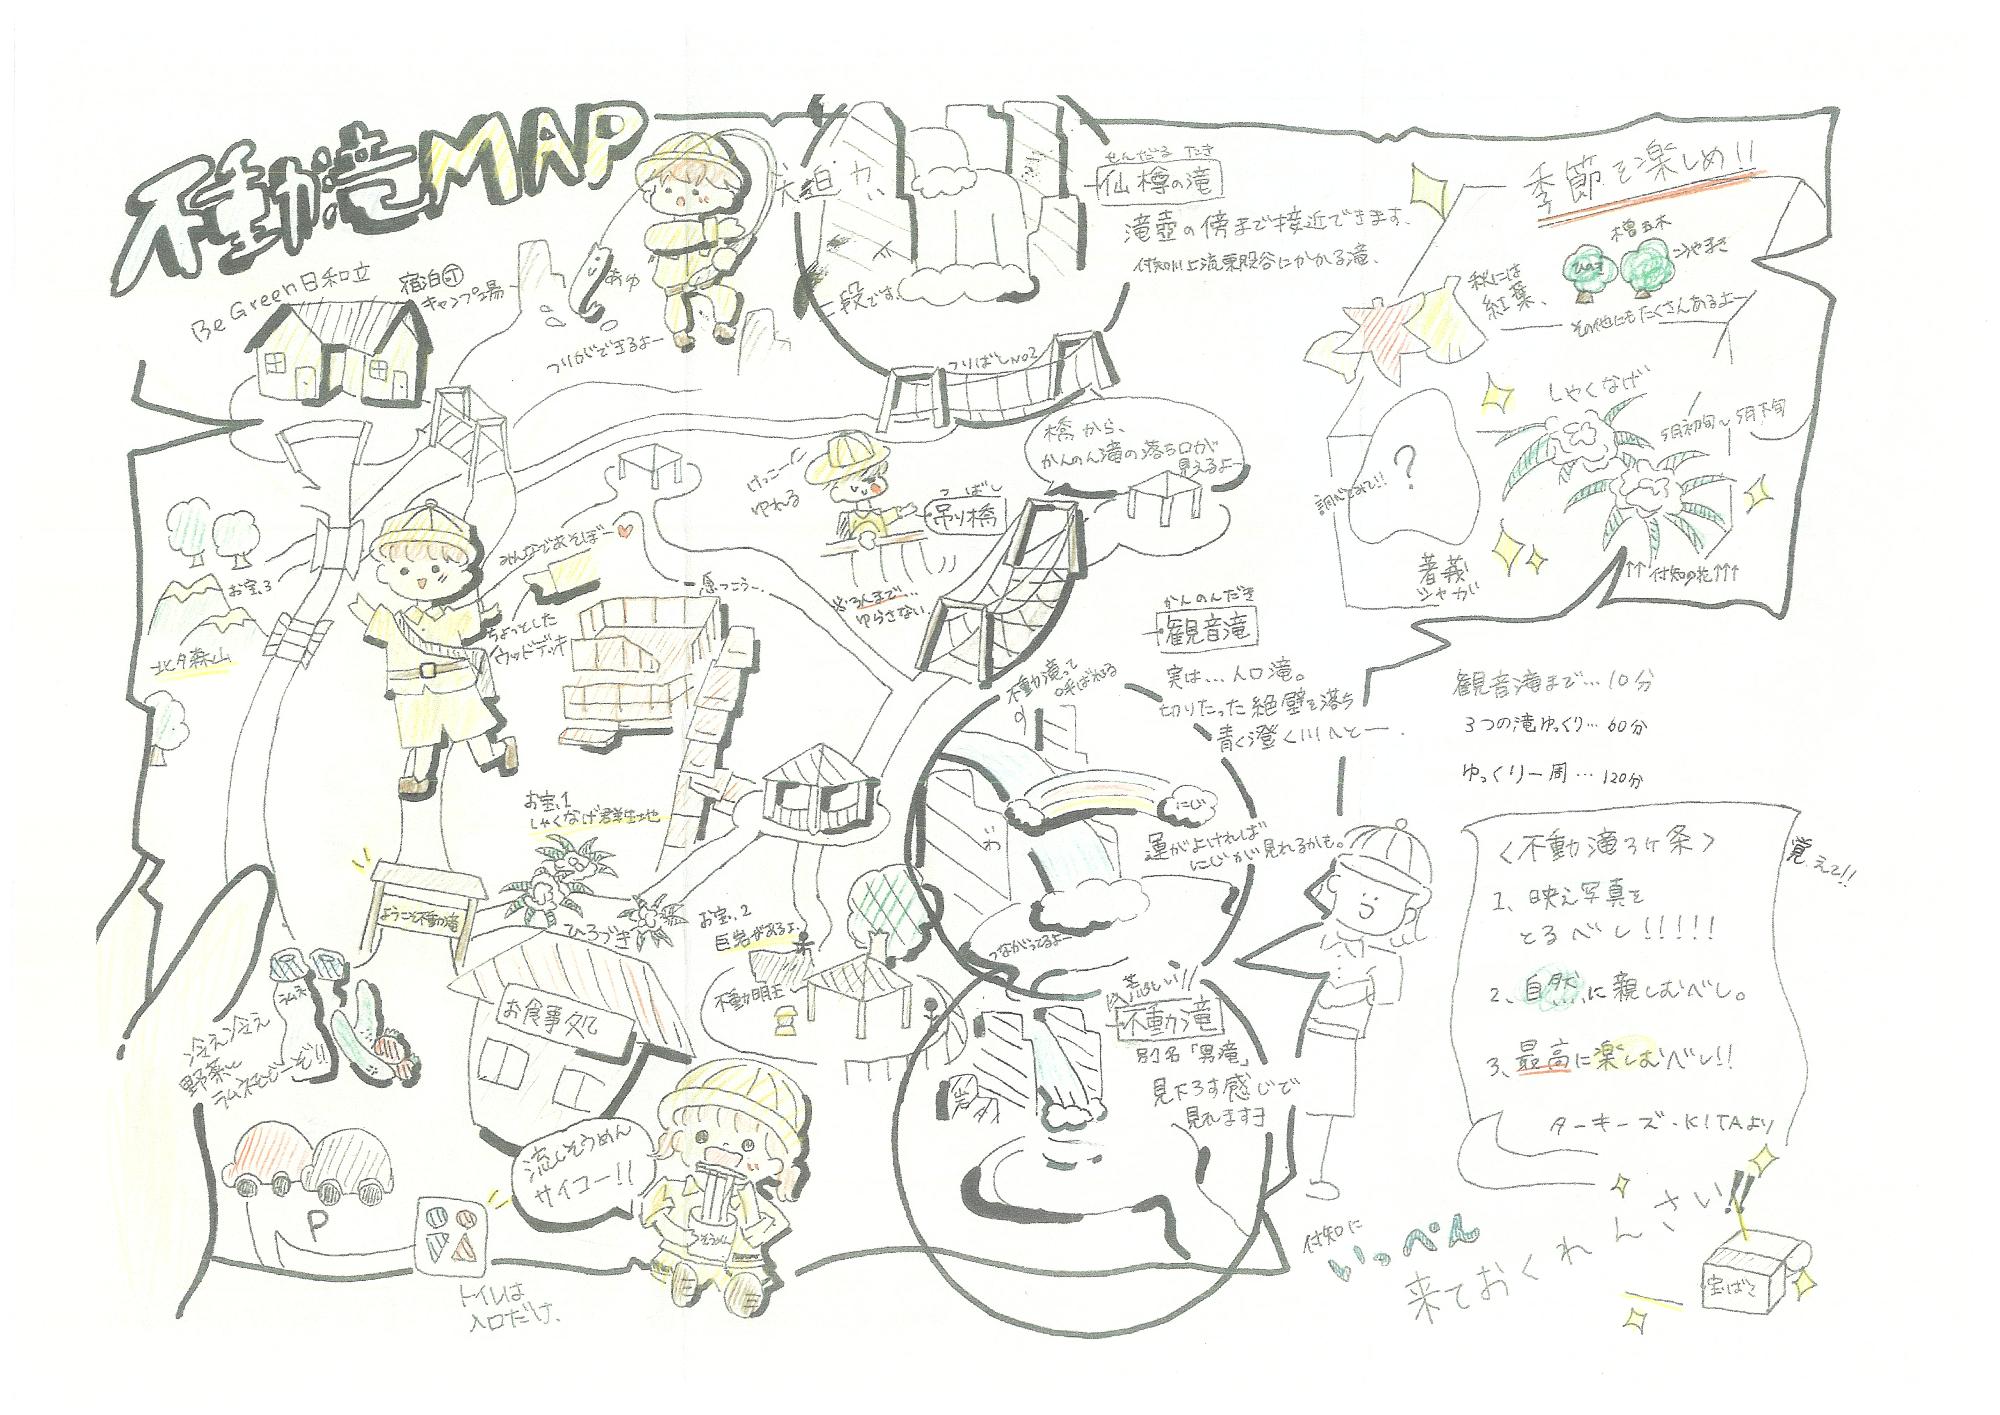 不動滝MAP
Be Green日和立
宿泊可
キャンプ場
あゆ
つりができるよー
大迫力、
二段です。
せんだる たき
仙樽の滝
滝壺の傍まで接近できます。
付知川上流東股谷にかかる滝、
つりばしNO2
季節を楽しめ!!
木曽五木
ひのき
こうやまき
その他にもたくさんあるよー
秋には
紅葉、
しゃくなげ
5月初旬〜5月下旬
↑↑付知の花↑↑↑
調べてみて!!
?
著莪
シャガ
橋から、
かんのん滝の落ち口が
見えるよー
けっこー
ゆれる
つ ばし
吊り橋
※3人まで…
ゆらさない。
みんなであそぼー♥
ちょっとした
ウッドデッキ
原っこうー、
お宝.3
北夕森山
かんのんだき
観音滝
実は…人口滝。
切りたった絶壁を落ち
青く澄く川へとー.
不動滝って
呼ばれる
にじ
運がよければ
にじが見れるかも。
いわ
つながってるよー
観音滝まで…10分
3つの滝ゆっくり…60分
ゆっくり一周…120分
お宝.1
しゃくなげ群生地
ようこそ不動滝
ひろづき
お宝.2
巨岩があるよ.
不動明王
お食事処
冷え冷え
野菜と
ラムネもどーぞ!!
ラムネ
流しそうめん
サイコー!!
そうめん
P
トイレは
入口だけ、
荒しい!!
不動滝
別名「男滝」
見下ろす感じで
見れますヨ
岩
<不動滝3ヶ条>
覚えて!!
1、映え写真を
とるべし!!!!!
2、自然に親しむべし。
3、最高に楽しむべし!!
ターキーズ・KITAより
付知に
いっぺん
来ておくれんさい!!
宝ばこ